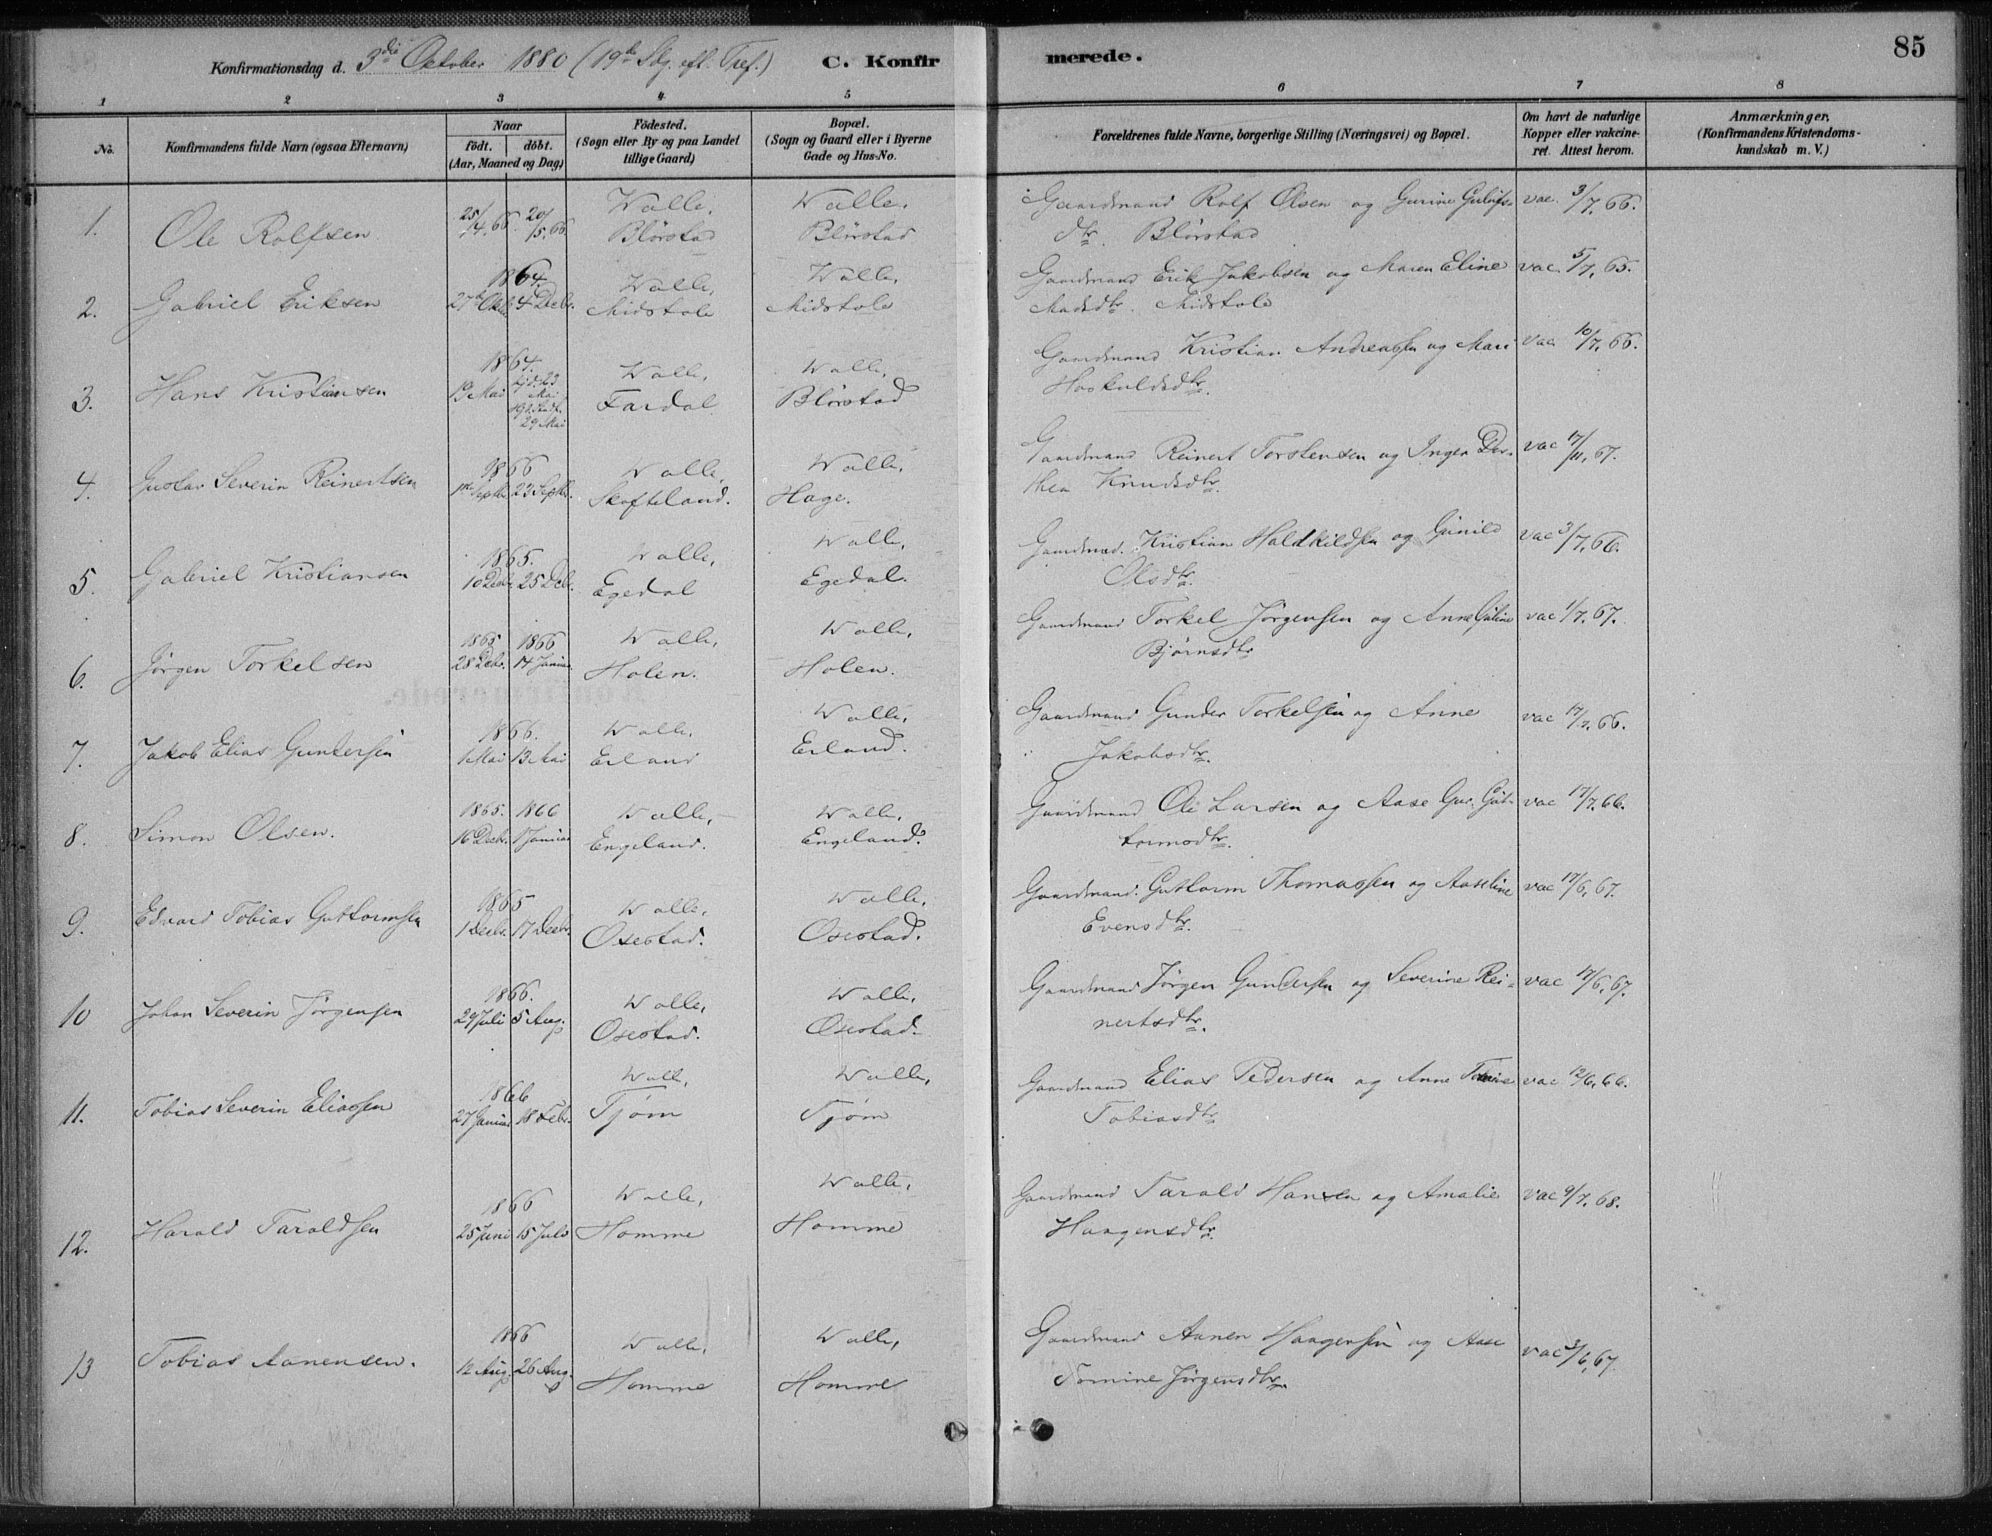 85
Konfirmationsdag d. 3die Oktober 1880 (19de Sdg. eft. Tref.) C. Konfirmerede.
1 2 3 4 5 6 7 8
No.
Konfirmandens fulde Navn (ogsaa Efternavn)
Naar
født. døbt.
(Aar, Maaned og Dag)
Fødested.
(Sogn eller By og paa Landet
tillige Gaard)
Bopæl.
(Sogn og Gaard eller i Byerne
Gade og Hus-No.
Forældrenes fulde Navne, borgerlige Stilling (Næringsvei) og Bopæl.
Om havt de naturlige
Kopper eller vakcine-
ret. Attest herom.
Anmærkninger.
(Konfirmandens Kristendoms-
kundskab m. V.)
1. Ole Rolfsen 25/4 66. 20/5 66. Walle, Blørstad Walle, Blørstad Gaardmand Rolf Olsen og Gurine vac. 3/7. 66.
dtr. Blørstad
2. Gabriel Eriksen 1864. 27de Oktbr 4 Decbr. Walle, Midstole Walle, Midstole Gaardmand Erik Jakobsen og Maren Eline vac. 5/7. 65.
Madsdtr. Midstole
3. Hans Kristiansen 1864. 19 Mai 23 Mai 29 Mai Walle, Fardal Walle, Blørstad Gaardmand Kristian Andreassen og Mari vac 10/7. 66.
Hoskuldsdtr.
4. Gustav Severin Reinertsen 1866 1ste Septbr. 23 Septbr. Walle, Skofteland. Walle, Hage. Gaardmand Reinert Torstensen og Inger Dor- vac 17/11. 67.
thea Knudsdtr.
5. Gabriel Kristiansen 1865. 10 Decbr. 25 Decbr. Walle, Egedal Walle, Egedal. Gaardmand. Kristian Haldkildsen og Gunild vac 3/7. 66.
Olsdtr.
6. Jørgen Torkelsen 1865 28 Decbr. 1866 14 Januar. Walle, Holen. Walle, Holen. Gaardmand Torkel Jørgensen og Anne Guline vac 1/7. 67.
Bjørnsdtr
7. Jakob Elias Gundersen 1866. 1 Mai 13 Mai Walle, Erland Walle, Erland. Gaardmand Gunder Torkelsen og Anne vac 17/7. 66.
Jakobsdtr.
8. Simon Olsen. 1865. 16 Decbr. 1866 1 Januar Walle, Engeland. Walle, Engeland. Gaardmand Ole Larsen og Aase Gur. Gut- vac 17/7. 66.
tormsdtr.
9. Edvard Tobias Guttormsen 1865 1 Decbr. 17 Decbr. Walle, Osestad. Walle, Osestad. Gaardmand. Guttorm Thomassen og Aaseline vac 17/6. 67.
Evensdtr.
10 Johan Severin Jørgensen 1866. 29 Juli 5 Aug. Walle, Osestad. Walle, Osestad. Gaardmand Jørgen Gundersen og Severine Rei- vac 17/6. 67.
nertsdtr.
11. Tobias Severin Eliassen 1866 27 Januar 18 Febr. Walle, Tjøm Walle, Tjøm Gaardmand Elias Pedersen og Anne vac 12/6. 66.
Tobiasdtr
12. Harald Taraldsen 1866 25 Juni 15 Juli Walle, Homme Walle, Homme Gaardmand Tarald Hansen og Amalie vac 9/7. 68.
Haagensdtr.
13 Tobias Aanensen. 1866 12 Aug. 26 Aug. Walle, Homme Walle, Homme Gaardmand Aanen Haagensen og Aase vac 3/6. 67.
Tomine Jørgensdtr.